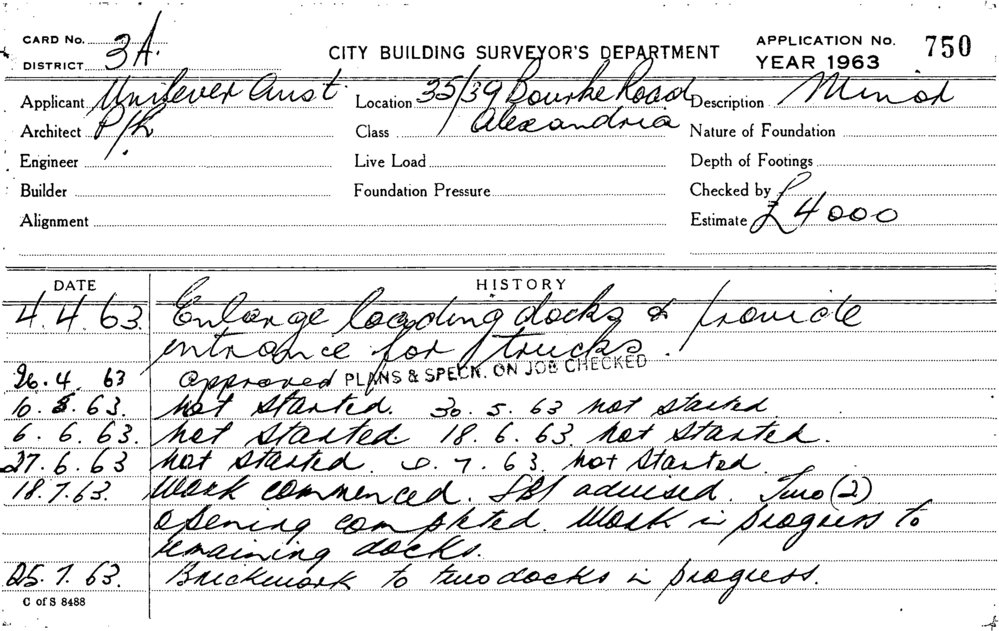 CARD No. 3A.
DISTRICT
CITY BUILDING SURVEYOR'S DEPARTMENT
APPLICATION No. 750
YEAR 1963
Applicant Unilever Aust.
Location 35/39 Bourke Road Alexandria
Description Minor
Architect P/R
Class
Nature of Foundation
Engineer
Live Load
Depth of Footings
Builder
Foundation Pressure
Checked by
Alignment
Estimate £4000
DATE HISTORY
4.4.63. Enlarge loading docks & provide
entrance for trucks.
26.4.63 approved PLANS & SPECN. ON JOB CHECKED
10.5.63. not started. 30.5.63 not started
6.6.63. not started 18.6.63. not started.
27.6.63 not started. 7.63. not started.
18.7.63. Work commenced. advised. Two (2)
opening completed. Work in progress to
remaining docks.
25.7.63. Brickwork to two docks in progress.
C of S 8488